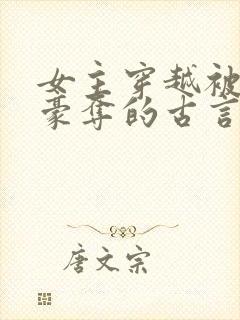 女主穿越被
豪夺的古言
唐文宗